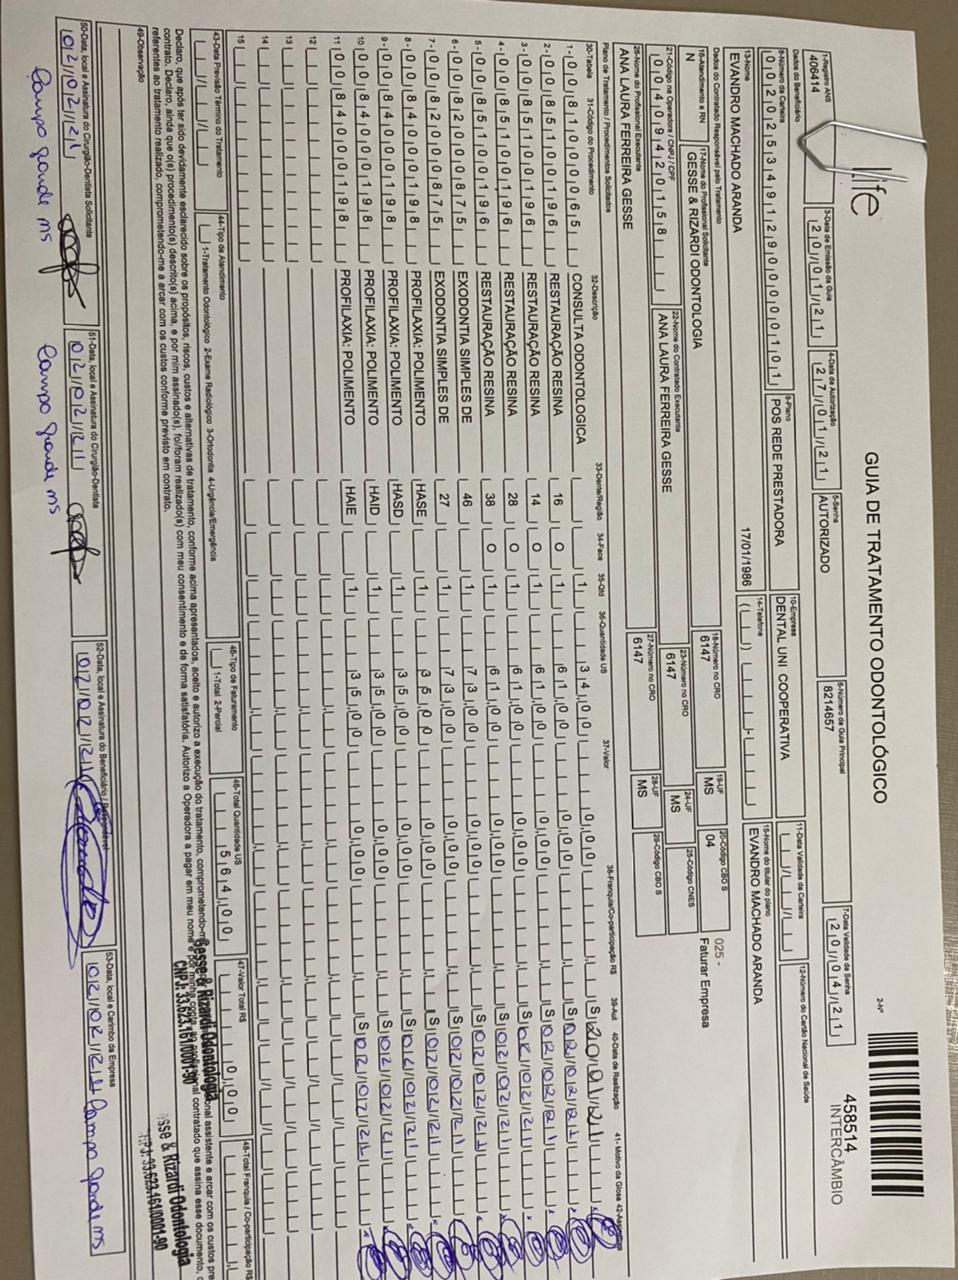 GUIA DE TRATAMENTO ODONTOLÓGICO
2-Nº
458514
INTERCÂMBIO
1-Registro ANS
406414
3-Data de Emissão da Guia
20/01/21
4-Data de Autorização
27/01/21
5-Senha
AUTORIZADO
6-Número da Guia Principal
8214657
7-Data Validade da Senha
20/04/21
Dados do Beneficiário
8-Número da Carteira
00202534912900000101
9-Plano
POS REDE PRESTADORA
10-Empresa
DENTAL UNI COOPERATIVA
11-Data Validade da Carteira
12-Número do Cartão Nacional de Saúde
13-Nome
EVANDRO MACHADO ARANDA
17/01/1986
14-Telefone
15-Nome do titular do plano
EVANDRO MACHADO ARANDA
Dados do Contratado Responsável pelo Tratamento
16-Atendimento a RN
N
17-Nome do Profissional Solicitante
GESSE & RIZARDI ODONTOLOGIA
18-Número no CRO
6147
19-UF
MS
20-Código CBO S
04
025 -
Faturar Empresa
21-Código na Operadora / CNPJ / CPF
00409420158
22-Nome do Contratado Executante
ANA LAURA FERREIRA GESSE
23-Número no CRO
6147
24-UF
MS
25-Código CNES
26-Nome do Profissional Executante
ANA LAURA FERREIRA GESSE
27-Número no CRO
6147
28-UF
MS
29-Código CBO S
Plano de Tratamento / Procedimentos Solicitados
30-Tabela 31-Código do Procedimento 32-Descrição 33-Dente/Região 34-Face 35-Qtd 36-Quantidade US 37-Valor 38-Franquia/Co-participação R$ 39-Aut 40-Data de Realização 41-Motivo da Glosa
1- 00 81000065 CONSULTA ODONTOLOGICA 1 34,00 0,00 S 20/01/21
2- 00 85100196 RESTAURAÇÃO RESINA 16 O 1 61,00 0,00 S 02/02/21
3- 00 85100196 RESTAURAÇÃO RESINA 14 O 1 61,00 0,00 S 02/02/21
4- 00 85100196 RESTAURAÇÃO RESINA 28 O 1 61,00 0,00 S 02/02/21
5- 00 85100196 RESTAURAÇÃO RESINA 38 O 1 61,00 0,00 S 02/02/21
6- 00 82000875 EXODONTIA SIMPLES DE 46 1 73,00 0,00 S 02/02/21
7- 00 82000875 EXODONTIA SIMPLES DE 27 1 73,00 0,00 S 02/02/21
8- 00 84000198 PROFILAXIA: POLIMENTO HASE 1 35,00 0,00 S 02/02/21
9- 00 84000198 PROFILAXIA: POLIMENTO HASD 1 35,00 0,00 S 02/02/21
10 00 84000198 PROFILAXIA: POLIMENTO HAID 1 35,00 0,00 S 02/02/21
11 00 84000198 PROFILAXIA: POLIMENTO HAIE 1 35,00 0,00 S 02/02/21
12
13
14
15
43-Data Prevista Término do Tratamento
44-Tipo de Atendimento
1-Tratamento Odontológico 2-Exame Radiológico 3-Ortodontia 4-Urgência/Emergência
45-Tipo de Faturamento
1-Total 2-Parcial
46-Total Quantidade US
564,00
47-Valor Total R$
0,00
48-Total Franquia / Co-participação R$
Declaro, que após ter sido devidamente esclarecido sobre os propósitos, riscos, custos e alternativas de tratamento, conforme acima apresentados, aceito e autorizo a execução do tratamento, comprometendo-m
contrato. Declaro, ainda que o(s) procedimento(s) descrito(s) acima, e por mim assinado(s), foi/foram realizado(s) com meu consentimento e de forma satisfatória. Autorizo a Operadora a pagar em meu nome
referentes ao tratamento realizado, comprometendo-me a arcar com os custos conforme previsto em contrato.
Gesse & Rizardi Odontologia
CNPJ: 33.623.161/0001-90
49-Observação
50-Data, local e Assinatura do Cirurgião-Dentista Solicitante
02/02/21
Campo grande ms
51-Data, local e Assinatura do Cirurgião-Dentista
02/02/21
Campo grande ms
52-Data, local e Assinatura do Beneficiário / Responsável
02/02/21
53-Data, local e Carimbo da Empresa
02/02/21 Campo grande ms
sse & Rizardi Odontologia
PJ: 33.623.161/0001-90